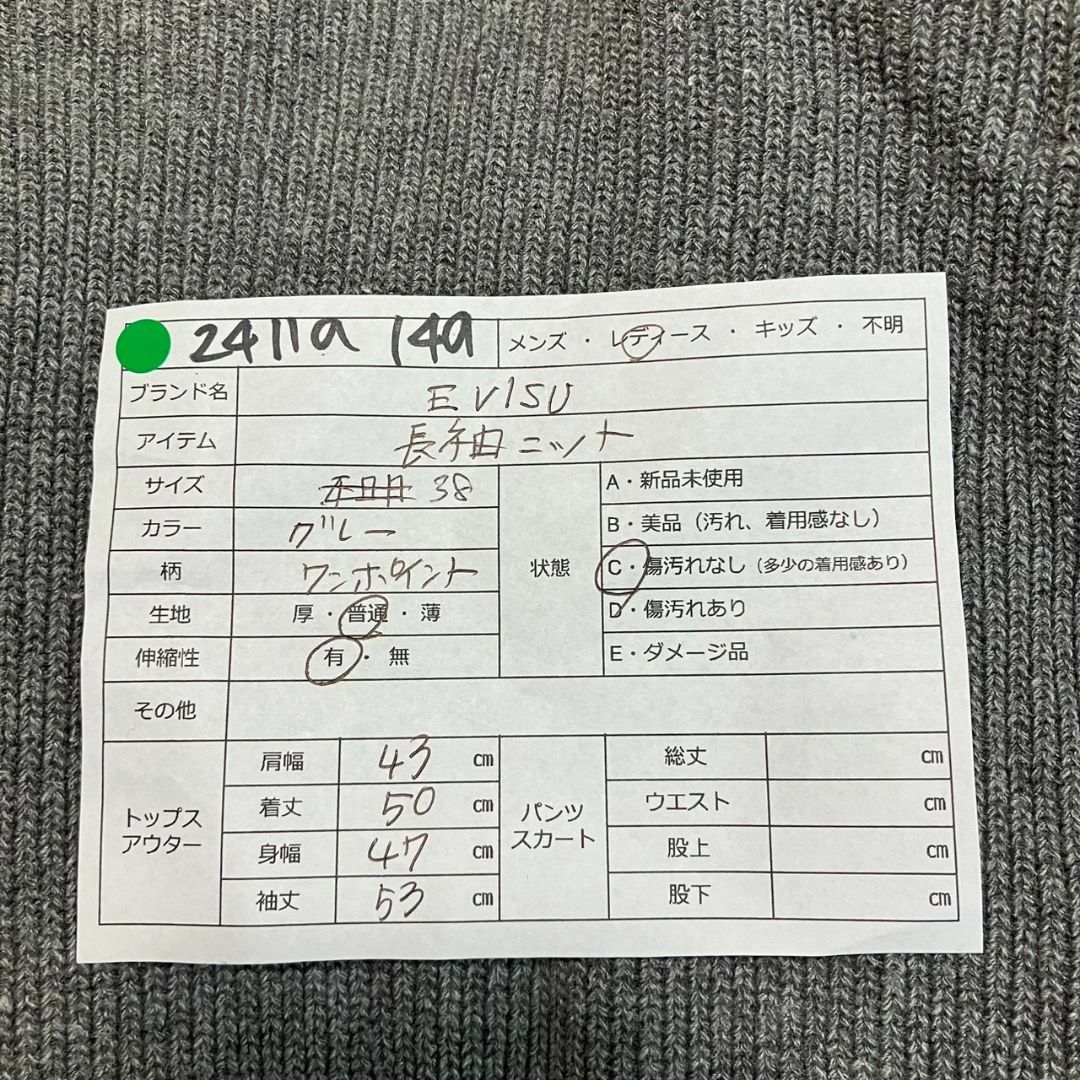 2411a 149 メンズ・レディース・キッズ・不明
ブランド名 EVISU
アイテム 長袖ニット
サイズ 38
カラー グレー
柄 ワンポイント
生地 厚・普通・薄
伸縮性 有・無
状態
A・新品未使用
B・美品（汚れ、着用感なし）
C・傷汚れなし（多少の着用感あり）
D・傷汚れあり
E・ダメージ品
その他
トップス
アウター
肩幅 43 cm
着丈 50 cm
身幅 47 cm
袖丈 53 cm
パンツ
スカート
総丈 cm
ウエスト cm
股上 cm
股下 cm